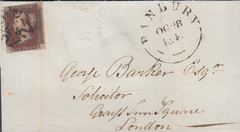 BANBURY
OC 18
184
George Barker Esqre.
Solicitor
Grays Inn Square
London